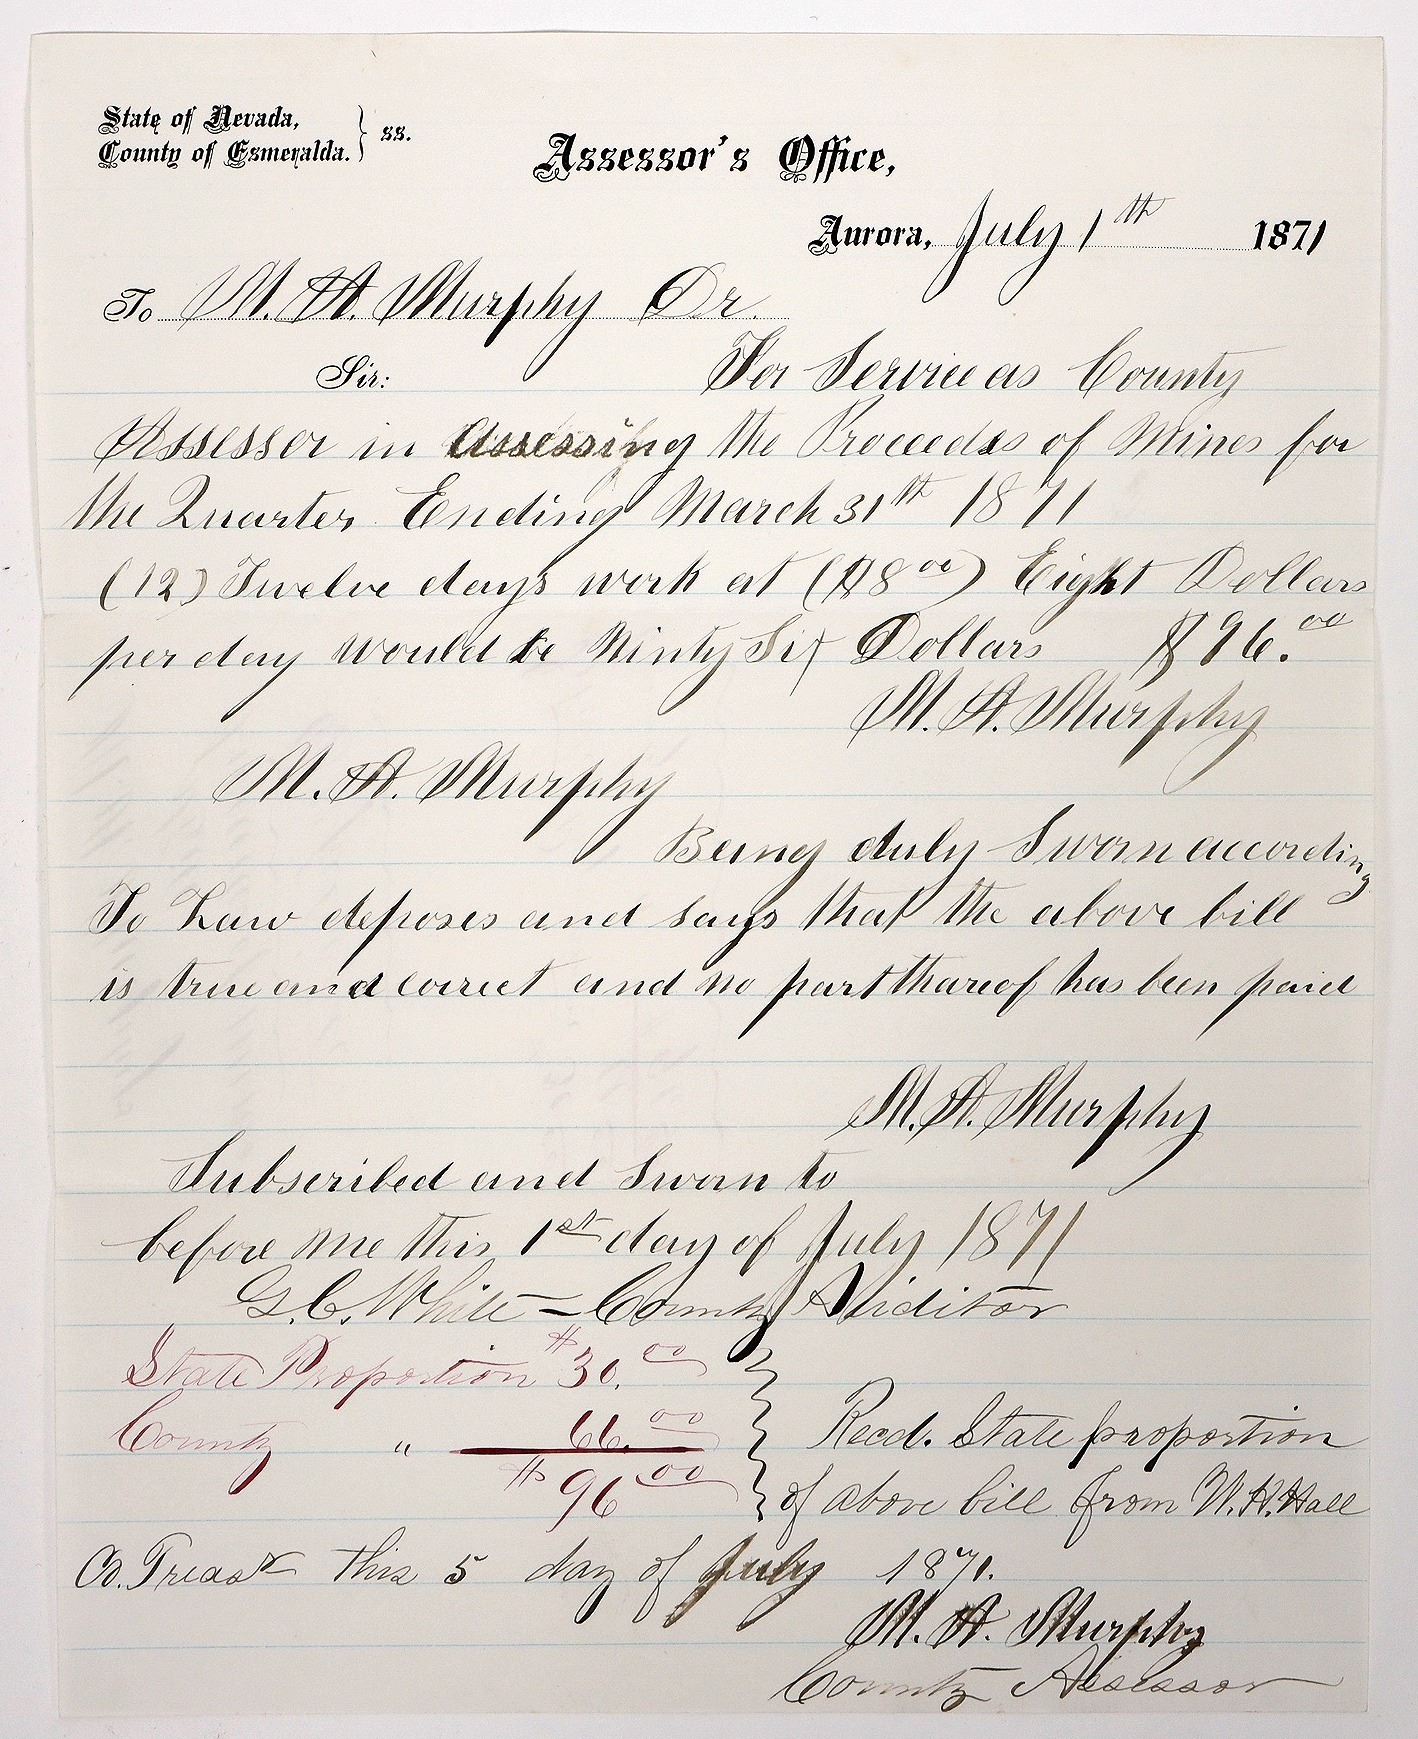 State of Nevada,
County of Esmeralda. } ss.
Assessor's Office,
Aurora, July 1th 1871
To M. A. Murphy Dr.
Sir: For Service as County
Assessor in Assessing the Proceeds of Mines for
the Quarter Ending March 31th 1871
(12) Twelve days work at ($8 00) Eight Dollars
per day would be Ninty Six Dollars $96.00
M. A. Murphy
M. A. Murphy
Being duly Sworn according
To Law deposes and says that the above bill
is true and correct and no part thareof has been paid
M. A. Murphy
Subscribed and Sworn to
before me this 1st day of July 1871
G. C. White - County Auditor
State Proportion $30.00
County " 66.00
$96 00
Recd. State proportion
of above bill from W. H. Hall
Co. Treasr this 5 day of July 1871.
M. A. Murphy
County Assessor